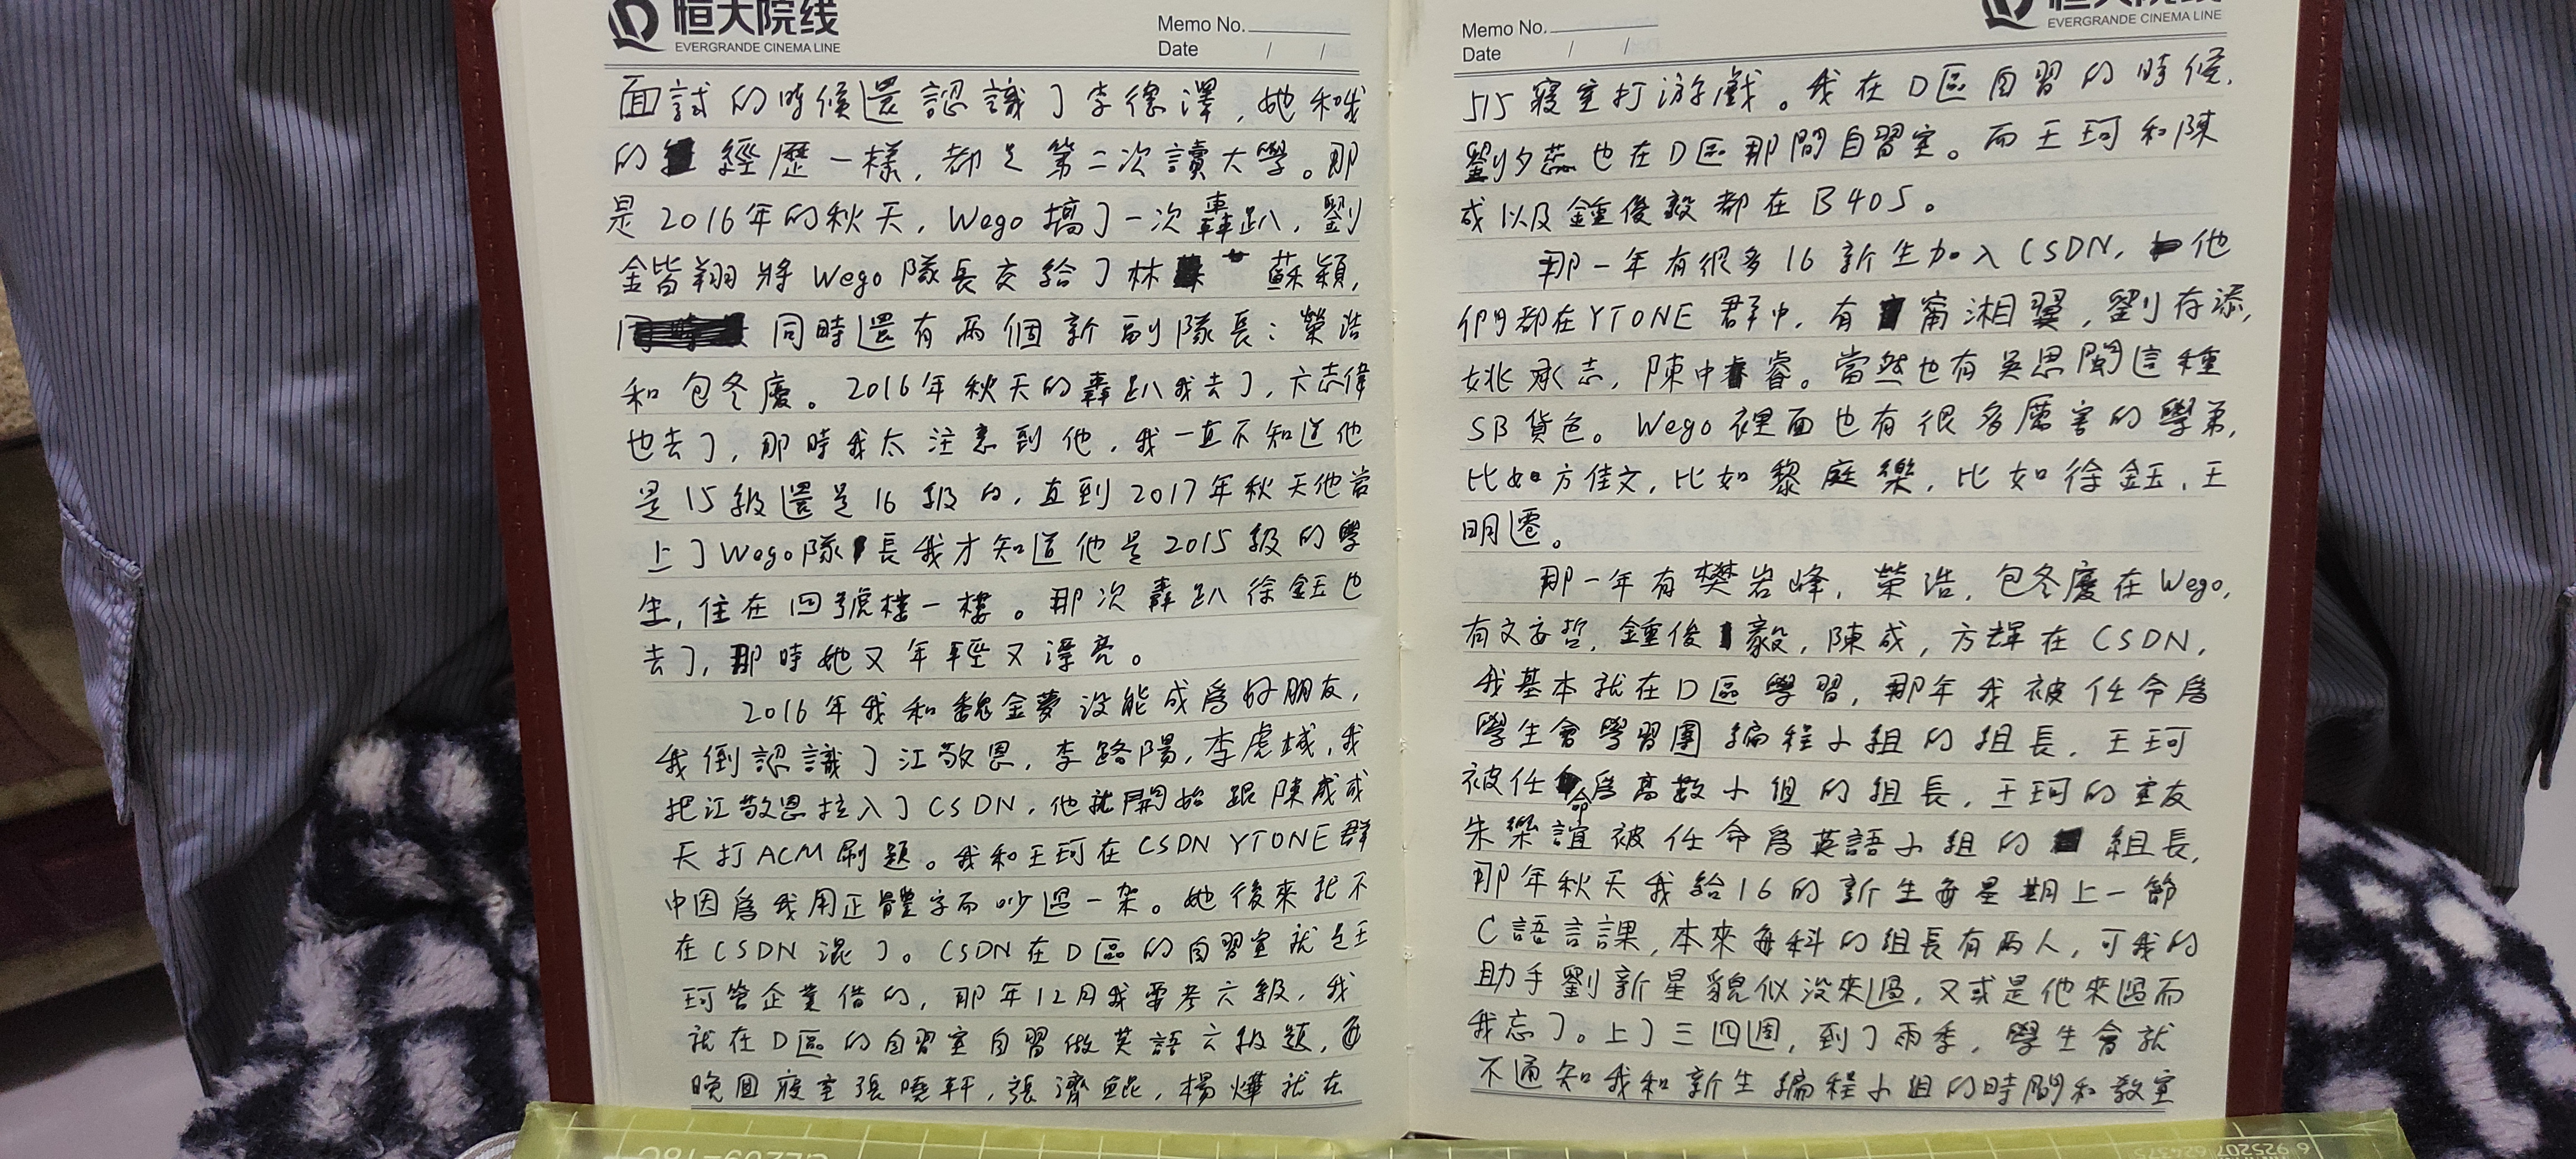 恒大院线
EVERGRANDE CINEMA LINE
Memo No.
Date / /
面試的時候還認識了李德澤,她和我
的經歷一樣,都是第二次讀大學。那
是2016年的秋天,Wego搞了一次轟趴,劉
金皆翔將Wego隊長交給了林蘇穎,
同時還有兩個新副隊長:榮浩
和包冬慶。2016年秋天的轟趴我去了,亢志偉
也去了,那時我太注意到他,我一直不知道他
是15級還是16級的,直到2017年秋天他當
上了Wego隊長我才知道他是2015級的學
生,住在四號樓一樓。那次轟趴徐鈺也
去了,那時她又年輕又漂亮。
2016年我和魏金夢沒能成為好朋友,
我倒認識了江敬恩,李路陽,李虎城,我
把江敬恩拉入了CSDN,他就開始跟陳成成
天打ACM刷題。我和王珂在CSDN YTONE群
中因為我用正體字而吵過一架。她後來就不
在CSDN混了。CSDN在D區的自習室就是王
珂管企業借的,那年12月我要考六級,我
就在D區的自習室自習做英語六級題,每
晚回寢室張曉軒,張濟鯤,楊燁就在
恒大院线
EVERGRANDE CINEMA LINE
Memo No.
Date / /
515寢室打游戲。我在D區自習的時候,
劉夕蕊也在D區那間自習室。而王珂和陳
成以及鍾俊毅都在B405。
那一年有很多16新生加入CSDN,他
們都在YTONE群中,有甯湘翼,劉存添,
姚承志,陳中睿。當然也有吳思閩這種
SB貨色。Wego裡面也有很多厲害的學弟,
比如方佳文,比如黎庭樂,比如徐鈺,王
明遷。
那一年有樊岩峰,榮浩,包冬慶在Wego,
有文安哲,鍾俊毅,陳成,方輝在CSDN,
我基本就在D區學習,那年我被任命為
學生會學習團編程小組的組長,王珂
被任命為高數小組的組長,王珂的室友
朱樂誼被任命為英語小組的組長,
那年秋天我給16的新生每星期上一節
C語言課,本來每科的組長有兩人,可我的
助手劉新星貌似沒來過,又或是他來過而
我忘了。上了三四週,到了雨季,學生會就
不通知我和新生編程小組的時間和教室